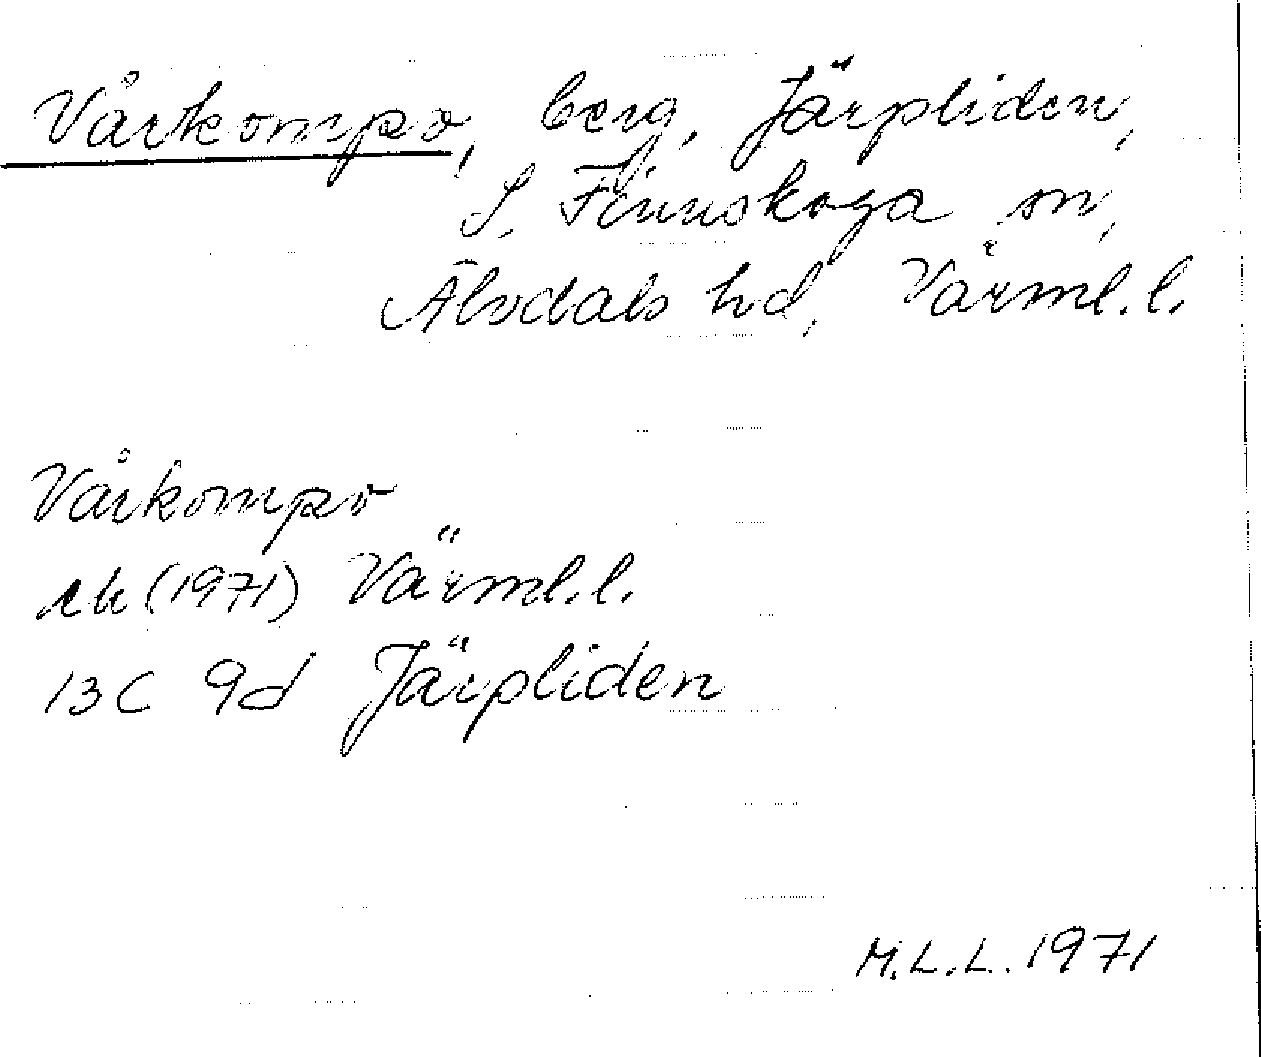 Vårkompo, berg, Järpliden,
S. Finnskoga sn,
Älvdals hd, Värml. l.
Vårkompo
ek (1971) Värml. l.
13C 9d Järpliden
M.L.L. 1971